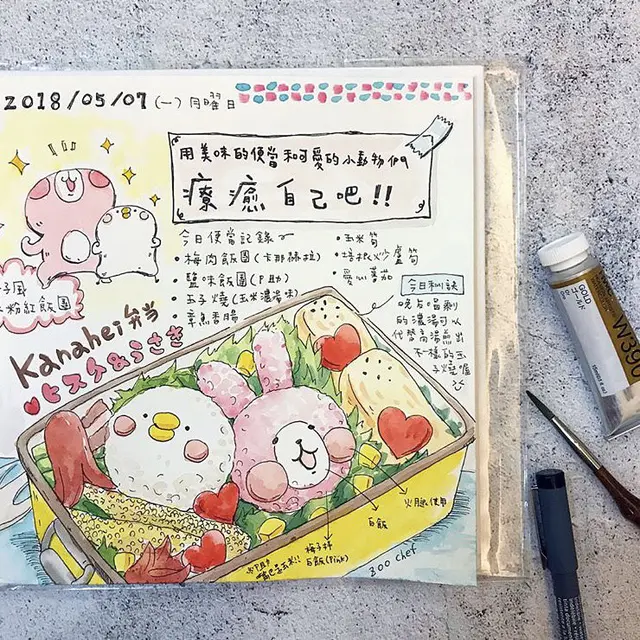 2018/05/07(一)月曜日
用美味的便當和可愛的小動物們
療癒自己吧!!
今日便當記錄
•梅肉飯團(卡那赫拉)
•鹽味飯團(P助)
•玉子燒(玉米濃湯味)
•章魚香腸
•玉米筍
•培根炒蘆筍
•愛心蕃茄
今日糾訣
晚上喝剩
的濃湯可以
代替高湯做出
不一樣的玉
子燒喔
粉紅飯團
Kanahei弁当
ピスケ&うさぎ
火腿使用
白飯
梅子拌
白飯(Pink)
嘴巴是玉米!!
Boo chef
GOLD
W390